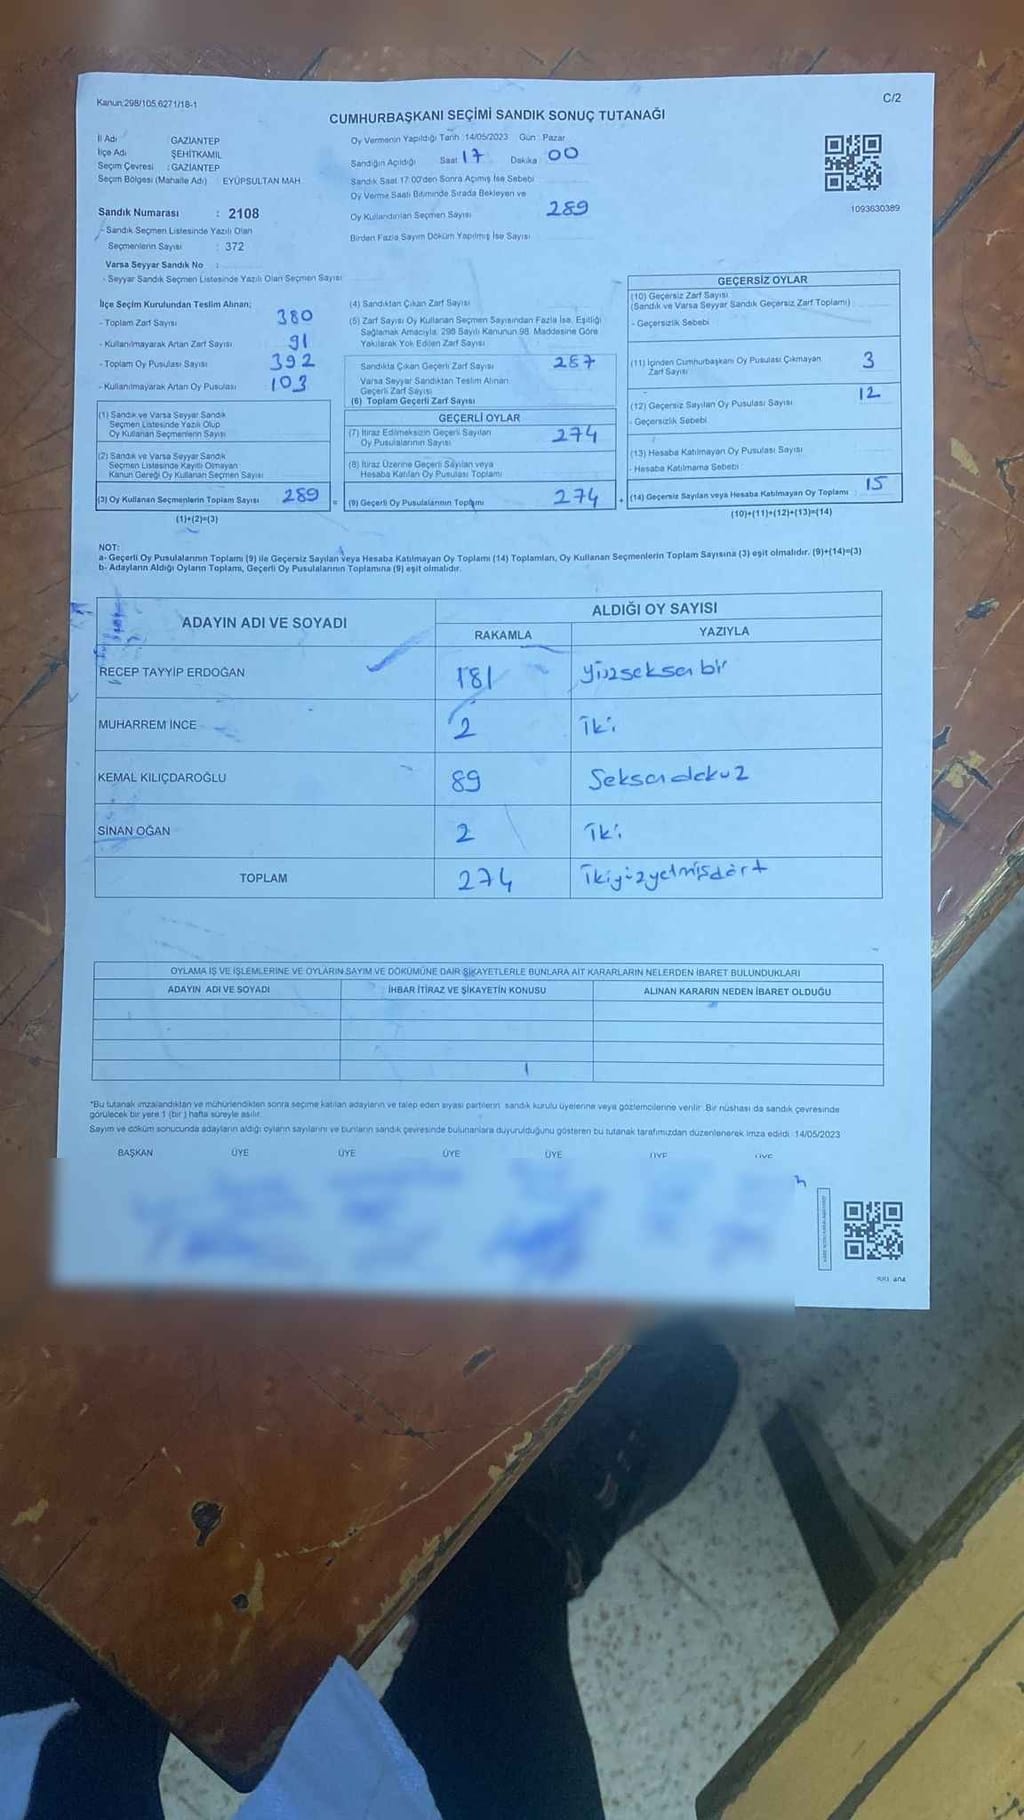 Kanun:298/105,6271/18-1
C/2
CUMHURBAŞKANI SEÇİMİ SANDIK SONUÇ TUTANAĞI
İl Adı GAZİANTEP
İlçe Adı ŞEHİTKAMİL
Seçim Çevresi : GAZİANTEP
Seçim Bölgesi (Mahalle Adı) EYÜPSULTAN MAH.
Sandık Numarası : 2108
- Sandık Seçmen Listesinde Yazılı Olan
Seçmenlerin Sayısı : 372
Varsa Seyyar Sandık No :
- Seyyar Sandık Seçmen Listesinde Yazılı Olan Seçmen Sayısı:
Oy Vermenin Yapıldığı Tarih :14/05/2023 Gün : Pazar
Sandığın Açıldığı Saat 17 Dakika 00
Sandık Saat 17:00'den Sonra Açımış İse Sebebi
Oy Verme Saati Bitiminde Sırada Bekleyen ve
Oy Kullandırılan Seçmen Sayısı 289
Birden Fazla Sayım Döküm Yapılmış İse Sayısı
1093630389
İlçe Seçim Kurulundan Teslim Alınan:
- Toplam Zarf Sayısı 380
- Kullanılmayarak Artan Zarf Sayısı 91
- Toplam Oy Pusulası Sayısı 392
- Kullanılmayarak Artan Oy Pusulası 103
(1) Sandık ve Varsa Seyyar Sandık
Seçmen Listesinde Yazılı Olup
Oy Kullanan Seçmenlerin Sayısı
(2) Sandık ve Varsa Seyyar Sandık
Seçmen Listesinde Kayıtlı Olmayan
Kanun Gereği Oy Kullanan Seçmen Sayısı
(3) Oy Kullanan Seçmenlerin Toplam Sayısı 289 =
(1)+(2)=(3)
(4) Sandıktan Çıkan Zarf Sayısı
(5) Zarf Sayısı Oy Kullanan Seçmen Sayısından Fazla İse, Eşitliği
Sağlamak Amacıyla, 298 Sayılı Kanunun 98. Maddesine Göre
Yakılarak Yok Edilen Zarf Sayısı
Sandıkta Çıkan Geçerli Zarf Sayısı 287
Varsa Seyyar Sandıktan Teslim Alınan
Geçerli Zarf Sayısı
(6) Toplam Geçerli Zarf Sayısı
GEÇERLİ OYLAR
(7) İtiraz Edilmeksizin Geçerli Sayılan
Oy Pusulalarının Sayısı 274
(8) İtiraz Üzerine Geçerli Sayılan veya
Hesaba Katılan Oy Pusulası Toplamı
(9) Geçerli Oy Pusulalarının Toplamı 274 +
GEÇERSİZ OYLAR
(10) Geçersiz Zarf Sayısı
(Sandık ve Varsa Seyyar Sandık Geçersiz Zarf Toplamı)
- Geçersizlik Sebebi
(11) İçinden Cumhurbaşkanı Oy Pusulası Çıkmayan
Zarf Sayısı 3
(12) Geçersiz Sayılan Oy Pusulası Sayısı 12
- Geçersizlik Sebebi
(13) Hesaba Katılmayan Oy Pusulası Sayısı
- Hesaba Katılmama Sebebi
(14) Geçersiz Sayılan veya Hesaba Katılmayan Oy Toplamı 15
(10)+(11)+(12)+(13)=(14)
NOT:
a- Geçerli Oy Pusulalarının Toplamı (9) ile Geçersiz Sayılan veya Hesaba Katılmayan Oy Toplamı (14) Toplamları, Oy Kullanan Seçmenlerin Toplam Sayısına (3) eşit olmalıdır. (9)+(14)=(3)
b- Adayların Aldığı Oyların Toplamı, Geçerli Oy Pusulalarının Toplamına (9) eşit olmalıdır.
ADAYIN ADI VE SOYADI
ALDIĞI OY SAYISI
RAKAMLA YAZIYLA
RECEP TAYYİP ERDOĞAN 181 yüzseksenbir
MUHARREM İNCE 2 İki
KEMAL KILIÇDAROĞLU 89 Seksendokuz
SİNAN OĞAN 2 İki
TOPLAM 274 İkiyüzyetmişdört
OYLAMA İŞ VE İŞLEMLERİNE VE OYLARIN SAYIM VE DÖKÜMÜNE DAİR ŞİKAYETLERLE BUNLARA AİT KARARLARIN NELERDEN İBARET BULUNDUKLARI
ADAYIN ADI VE SOYADI İHBAR İTİRAZ VE ŞİKAYETİN KONUSU ALINAN KARARIN NEDEN İBARET OLDUĞU
*Bu tutanak imzalandıktan ve mühürlendikten sonra seçime katılan adayların ve talep eden siyasi partilerin sandık kurulu üyelerine veya gözlemcilerine verilir. Bir nüshası da sandık çevresinde
görülecek bir yere 1 (bir) hafta süreyle asılır.
Sayım ve döküm sonucunda adayların aldığı oyların sayılarını ve bunların sandık çevresinde bulunanlara duyurulduğunu gösteren bu tutanak tarafımızdan düzenlenerek imza edildi. 14/05/2023
BAŞKAN ÜYE ÜYE ÜYE ÜYE ÜYE ÜYE